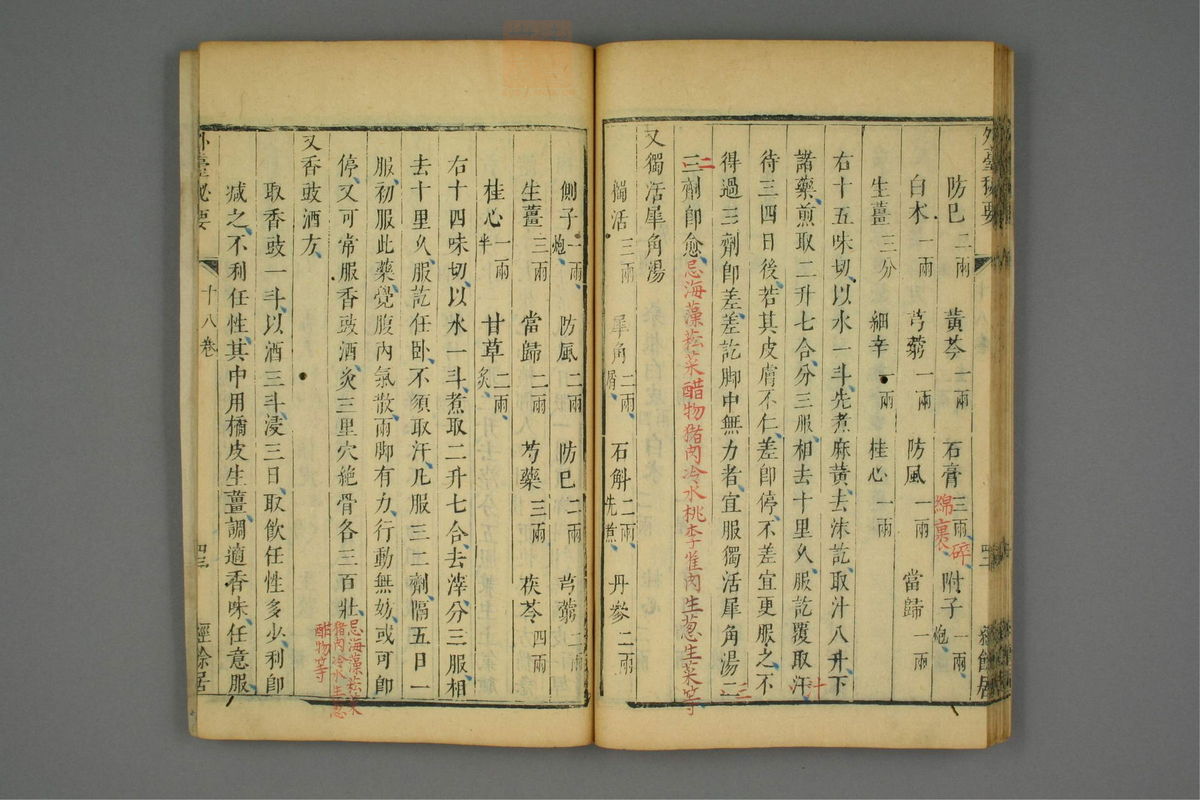 外臺秘要 卷 四二 經餘居
防巳二兩 黃芩一兩 石膏三兩碎綿裹 附子一兩炮
白朮一兩 芎藭一兩 防風一兩 當歸一兩
生薑三分 細辛一兩 桂心一兩
右十五味切以水一斗先煮麻黃去沫訖取汁八升下
諸藥煎取二升七合分三服相去十里久服訖覆取汗
待三四日後若其皮膚不仁差卽停不差宜更服之不
得過三劑卽差差訖脚中無力者宜服獨活犀角湯二
三劑卽愈忌海藻菘菜醋物猪肉冷水桃李雀肉生葱生菜等
又獨活犀角湯
獨活三兩 犀角二兩屑 石斛二兩先煮 丹參二兩
側子一兩炮 防風二兩 防巳二兩 芎藭二兩
生薑三兩 當歸二兩 芍藥三兩 茯苓四兩
桂心一兩半 甘草二兩炙
右十四味切以水一斗煮取二升七合去滓分三服相
去十里久服訖任卧不須取汗凡服三二劑隔五日一
服初服此藥覺腹內氣散兩脚有力行動無妨或可卽
停又可常服香豉酒灸三里穴絕骨各三百壯忌海藻菘菜猪肉冷水生葱醋物等
又香豉酒方
取香豉一斗以酒三斗浸三日取飲任性多少利卽
減之不利任性其中用橘皮生薑調適香味任意服
外臺秘要 十八卷 四三 經餘居